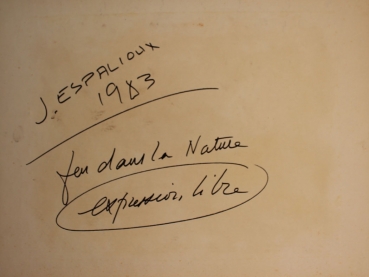 J. ESPALIOUX
1983
feu dans la Nature
expression libre